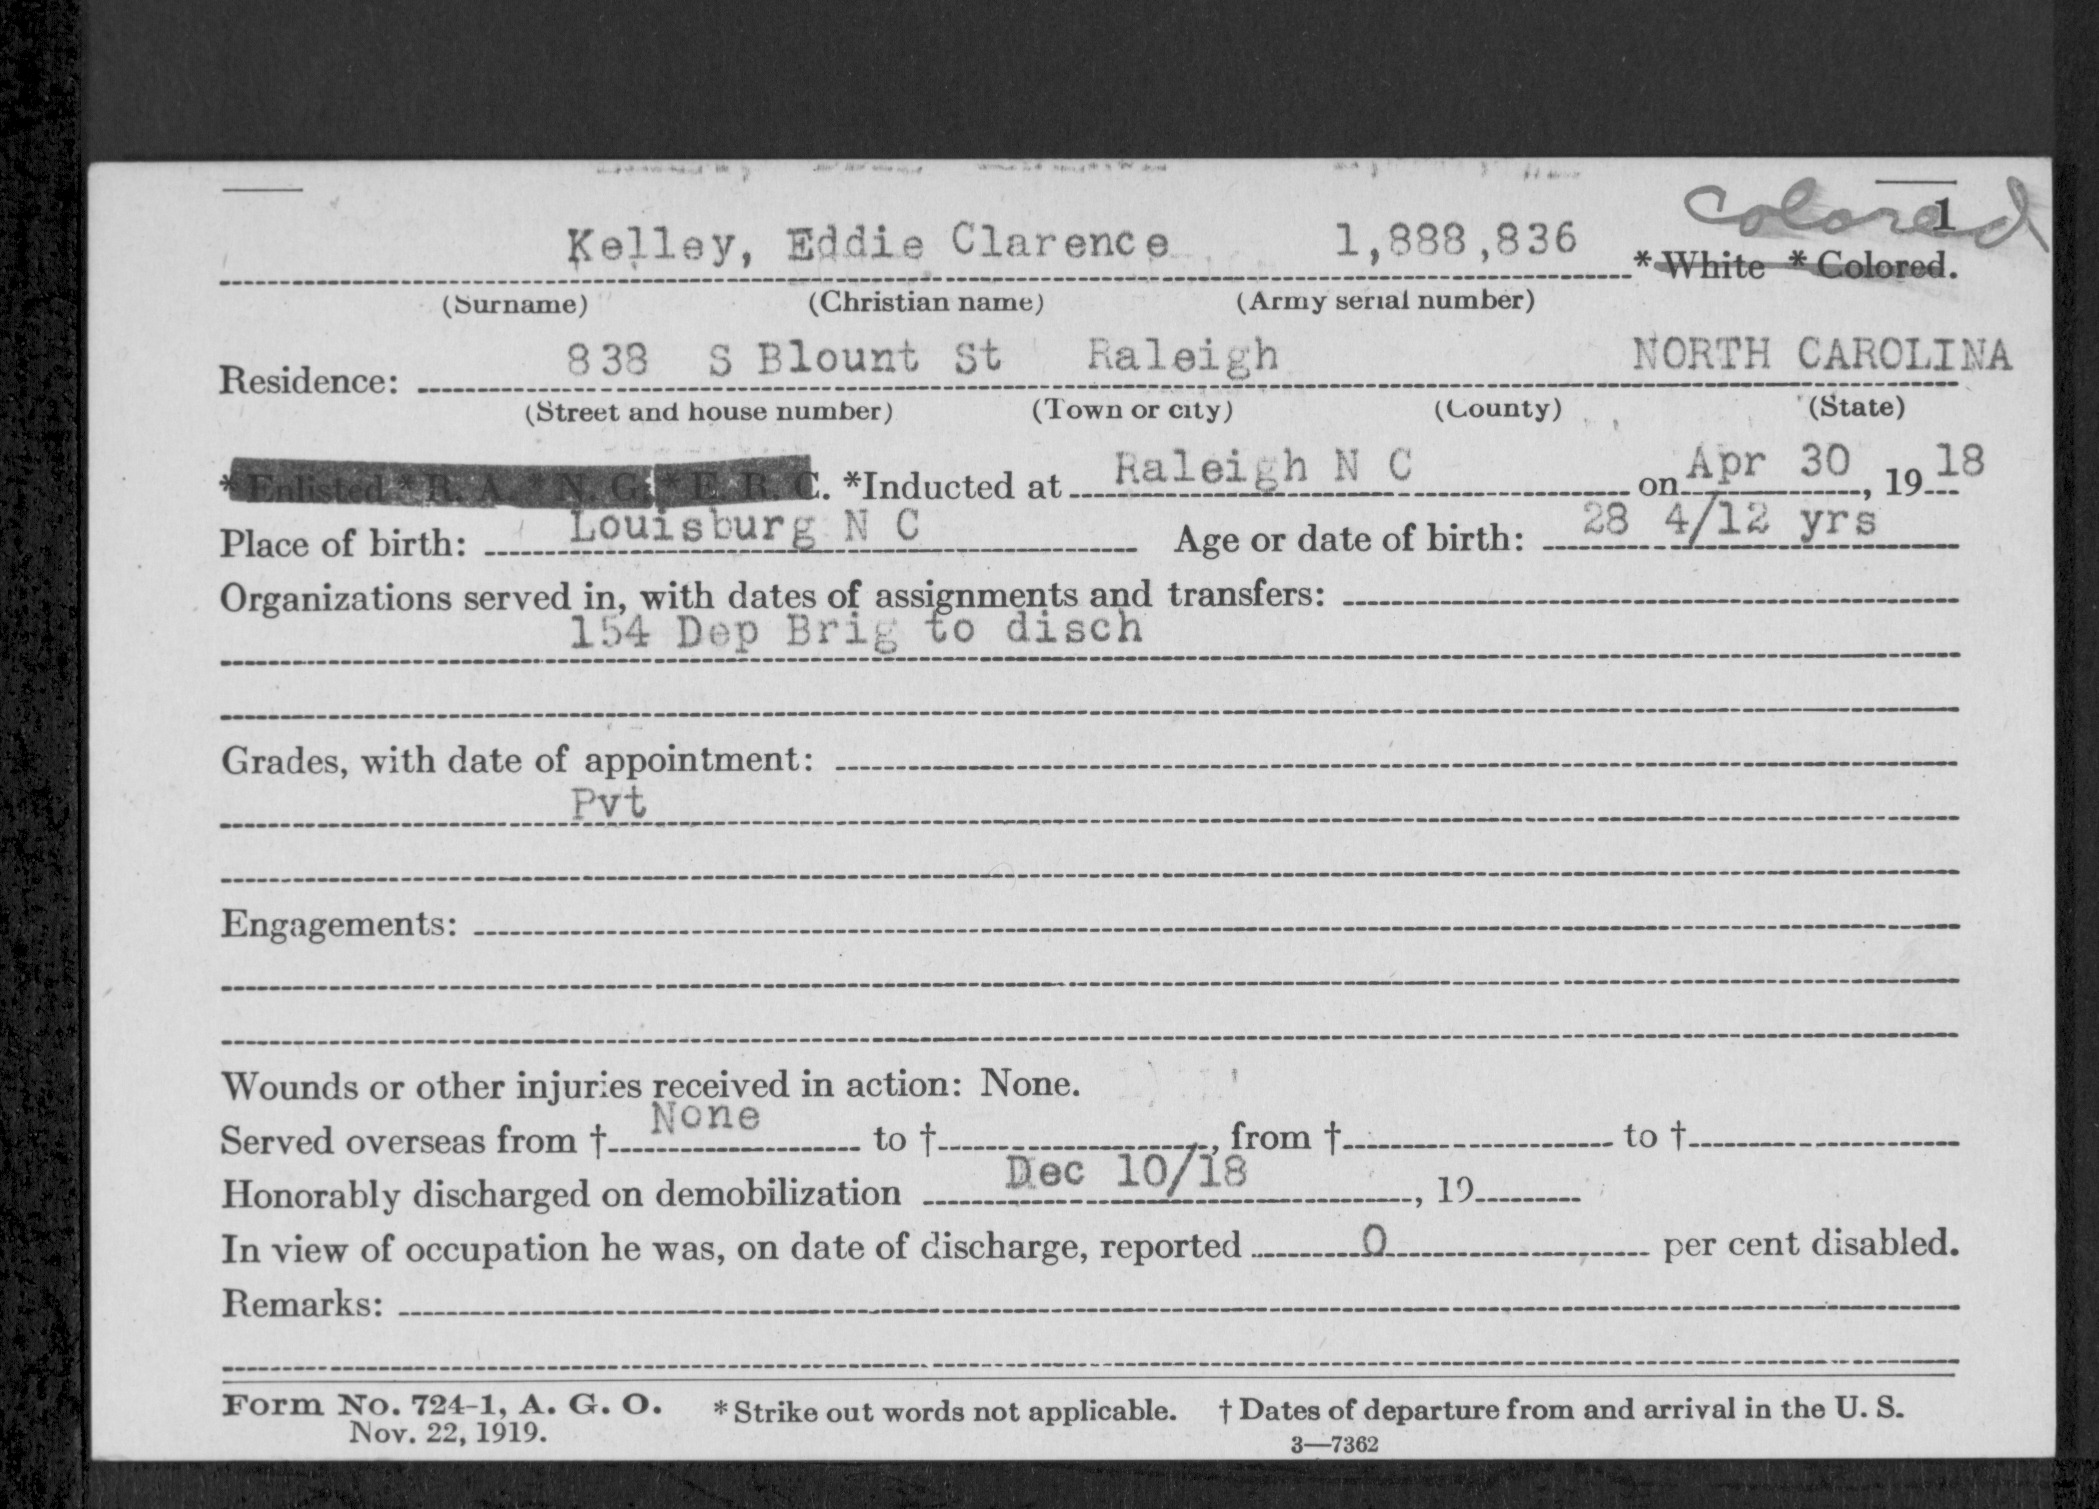 colored
1
Kelley, Eddie Clarence 1,888,836 * White * Colored.
(Surname) (Christian name) (Army serial number)
Residence: 838 S Blount St Raleigh NORTH CAROLINA
(Street and house number) (Town or city) (County) (State)
* Enlisted * R. A. * N. G. * E. R. C. *Inducted at Raleigh N C on Apr 30, 1918
Place of birth: Louisburg N C Age or date of birth: 28 4/12 yrs
Organizations served in, with dates of assignments and transfers:
154 Dep Brig to disch
Grades, with date of appointment:
Pvt
Engagements:
Wounds or other injuries received in action: None.
Served overseas from † None to †, from † to †
Honorably discharged on demobilization Dec 10/18, 19
In view of occupation he was, on date of discharge, reported 0 per cent disabled.
Remarks:
Form No. 724-1, A. G. O. * Strike out words not applicable. † Dates of departure from and arrival in the U. S.
Nov. 22, 1919. 3—7362